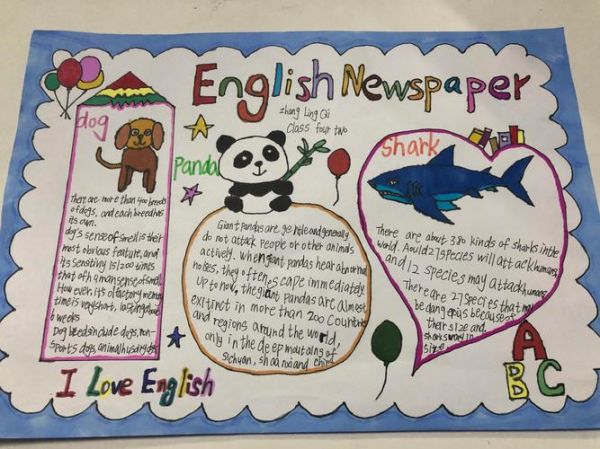 English Newspaper
zhang Ling Qi
Class four two
dog
There are more than 400 breeds
of dogs, and each breed has
its own.
dog's sense of smell is their
most obvious feature, and
its sensitivity is 1200 times
that of human sense of smell.
However, its olfactory memory
time is very short, lasting about
6 weeks
Dog breeds include dogs, non-
sports dogs, animal husbandry dogs
Panda
Giant pandas are gentle and generally
do not attack people or other animals
actively. When giant pandas hear abnormal
noises, they often escape immediately
up to now, the giant pandas are almost
extinct in more than 200 countries
and regions around the world,
only in the deep moutaing of
sichuan, shaanxi and china
shark
There are about 380 kinds of sharks in the
world. Aould 27 species will attack humans,
and 12 species may attack humans
There are 27 species that may
be dangerous because of
their size and
sharks vary in
size
I Love English
A
B C